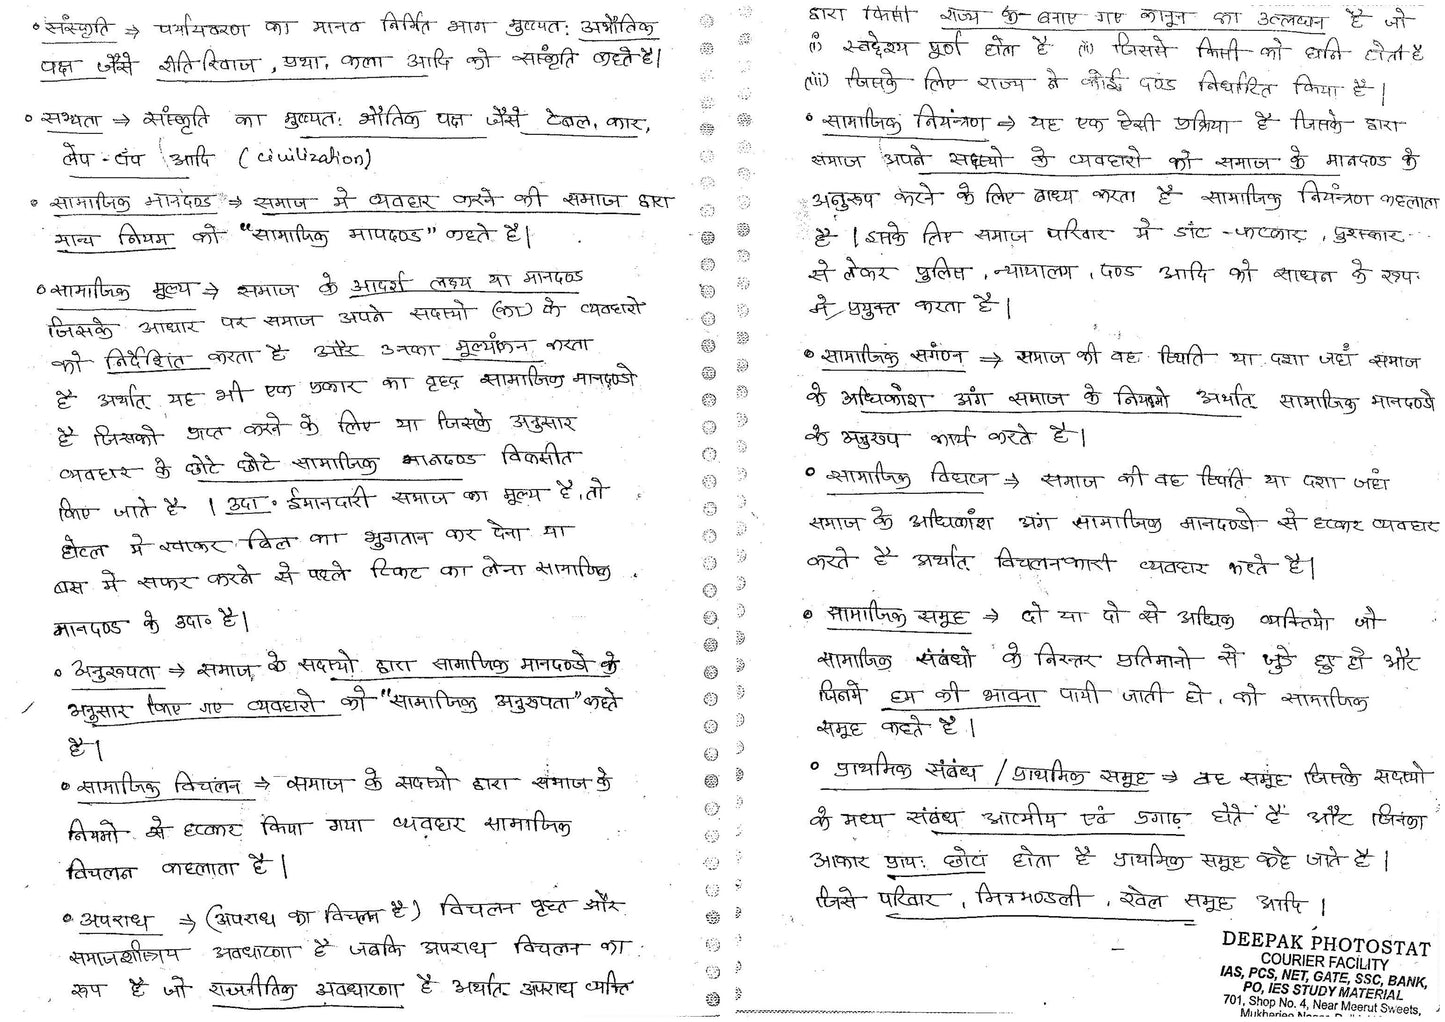 • संस्कृति ⇒ पर्यावरण का मानव निर्मित भाग मुख्यतः अभौतिक
पक्ष जैसे रीति-रिवाज, प्रथा, कला आदि को संस्कृति कहते है।
• सभ्यता ⇒ संस्कृति का मुख्यतः भौतिक पक्ष जैसे टेबल, कार,
लेप-टॉप आदि (civilization)
• सामाजिक मानदण्ड ⇒ समाज मे व्यवहार करने की समाज द्वारा
मान्य नियम को "सामाजिक मापदण्ड" कहते है।
• सामाजिक मूल्य ⇒ समाज के आदर्श लक्ष्य या मानदण्ड
जिसके आधार पर समाज अपने सदस्यो (का) के व्यवहारो
को निर्देशित करता है और उनका मूल्यांकन करता
है अर्थात् यह भी एक प्रकार का वृहद सामाजिक मानदण्डो
है जिसको प्राप्त करने के लिए या जिसके अनुसार
व्यवहार के छोटे छोटे सामाजिक मानदण्ड विकसीत
किए जाते है । उदा॰ ईमानदारी समाज का मूल्य है, तो
होटल मे खाकर बिल का भुगतान कर देना या
बस में सफर करने से पहले टिकट का लेना सामाजिक
मानदण्ड के उदा॰ है।
• अनुरूपता → समाज के सदस्यो द्वारा सामाजिक मानदण्डो के
अनुसार किए गए व्यवहारो को "सामाजिक अनुरूपता" कहते
है।
• सामाजिक विचलन ⇒ समाज के सदस्यो द्वारा समाज के
नियमो से हटकर किया गया व्यवहार सामाजिक
विचलन कहलाता है।
• अपराध ⇒ (अपराध का विचलन है) विचलन वृहत और
समाजशास्त्रीय अवधारणा है जबकि अपराध विचलन का
रूप है जो राजनीतिक अवधारणा है अर्थात् अपराध व्यक्ति
द्वारा किसी राज्य के बनाए गए कानून का उल्लंघन है जो
(i) स्वद्देश्य पूर्ण होता है (ii) जिससे किसी को हानि होती है
(iii) जिसके लिए राज्य ने कोई दण्ड निर्धारित किया है।
• सामाजिक नियंत्रण ⇒ यह एक ऐसी प्रक्रिया है जिसके द्वारा
समाज अपने सदस्यो के व्यवहारो को समाज के मानदण्ड के
अनुरूप करने के लिए बाध्य करता है सामाजिक नियंत्रण कहलाता
है । इसके लिए समाज परिवार मे डांट-फटकार, पुरस्कार
से लेकर पुलिस, न्यायालय, दण्ड आदि को साधन के रूप
मे प्रयुक्त करता है।
• सामाजिक संगठन ⇒ समाज की वह स्थिति या दशा जहाँ समाज
के अधिकांश अंग समाज के नियमो अर्थात् सामाजिक मानदण्डो
के अनुरूप कार्य करते है।
• सामाजिक विघटन ⇒ समाज की वह स्थिति या दशा जहां
समाज के अधिकांश अंग सामाजिक मानदण्डो से हटकर व्यवहार
करते है अर्थात् विचलनकारी व्यवहार करते है।
• सामाजिक समूह ⇒ दो या दो से अधिक व्यक्तियो जो
सामाजिक संबंधो के निरन्तर प्रतिमानो से जुड़े हुए हो और
जिनमे हम की भावना पायी जाती हो, को सामाजिक
समूह कहते है।
• प्राथमिक संबंध / प्राथमिक समूह ⇒ वह समूह जिसके सदस्यो
के मध्य संबंध आत्मीय एवं प्रगाढ़ होते है और जिनका
आकार प्रायः छोटा होता है प्राथमिक समूह कहे जाते है।
जिसे परिवार, मित्रमण्डली, खेल समूह आदि।
DEEPAK PHOTOSTAT
COURIER FACILITY
IAS, PCS, NET, GATE, SSC, BANK,
PO, IES STUDY MATERIAL
701, Shop No. 4, Near Meerut Sweets,
Mukherjee